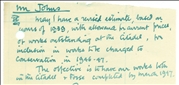 Mr Johns
May I have a revised estimate, based on
terms of 1939, with allowance for current prices,
for works outstanding at the Citadel, for
inclusion in works to be charged to
Conservation in 1946-47.
The objective is to have our works
in the Citadel & Fosse completed by March 1947.